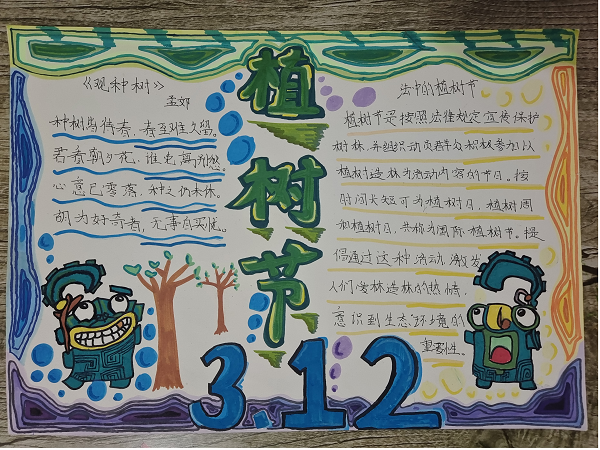 《观种树》
孟郊
种树皆待春，春至难久留。
君看朝夕花，谁免离别愁。
心意已零落，种之仍未休。
胡为好奇者，无事自买忧。
植树节
法中的植树节
植树节是按照法律规定宣传保护
树林，并组织动员群众积极参加以
植树造林为活动内容的节日。按
时间长短可为植树日、植树周
和植树月，共称为国际植树节。提
倡通过这种活动，激发
人们爱林造林的热情、
意识到生态环境的
重要性。
3.12